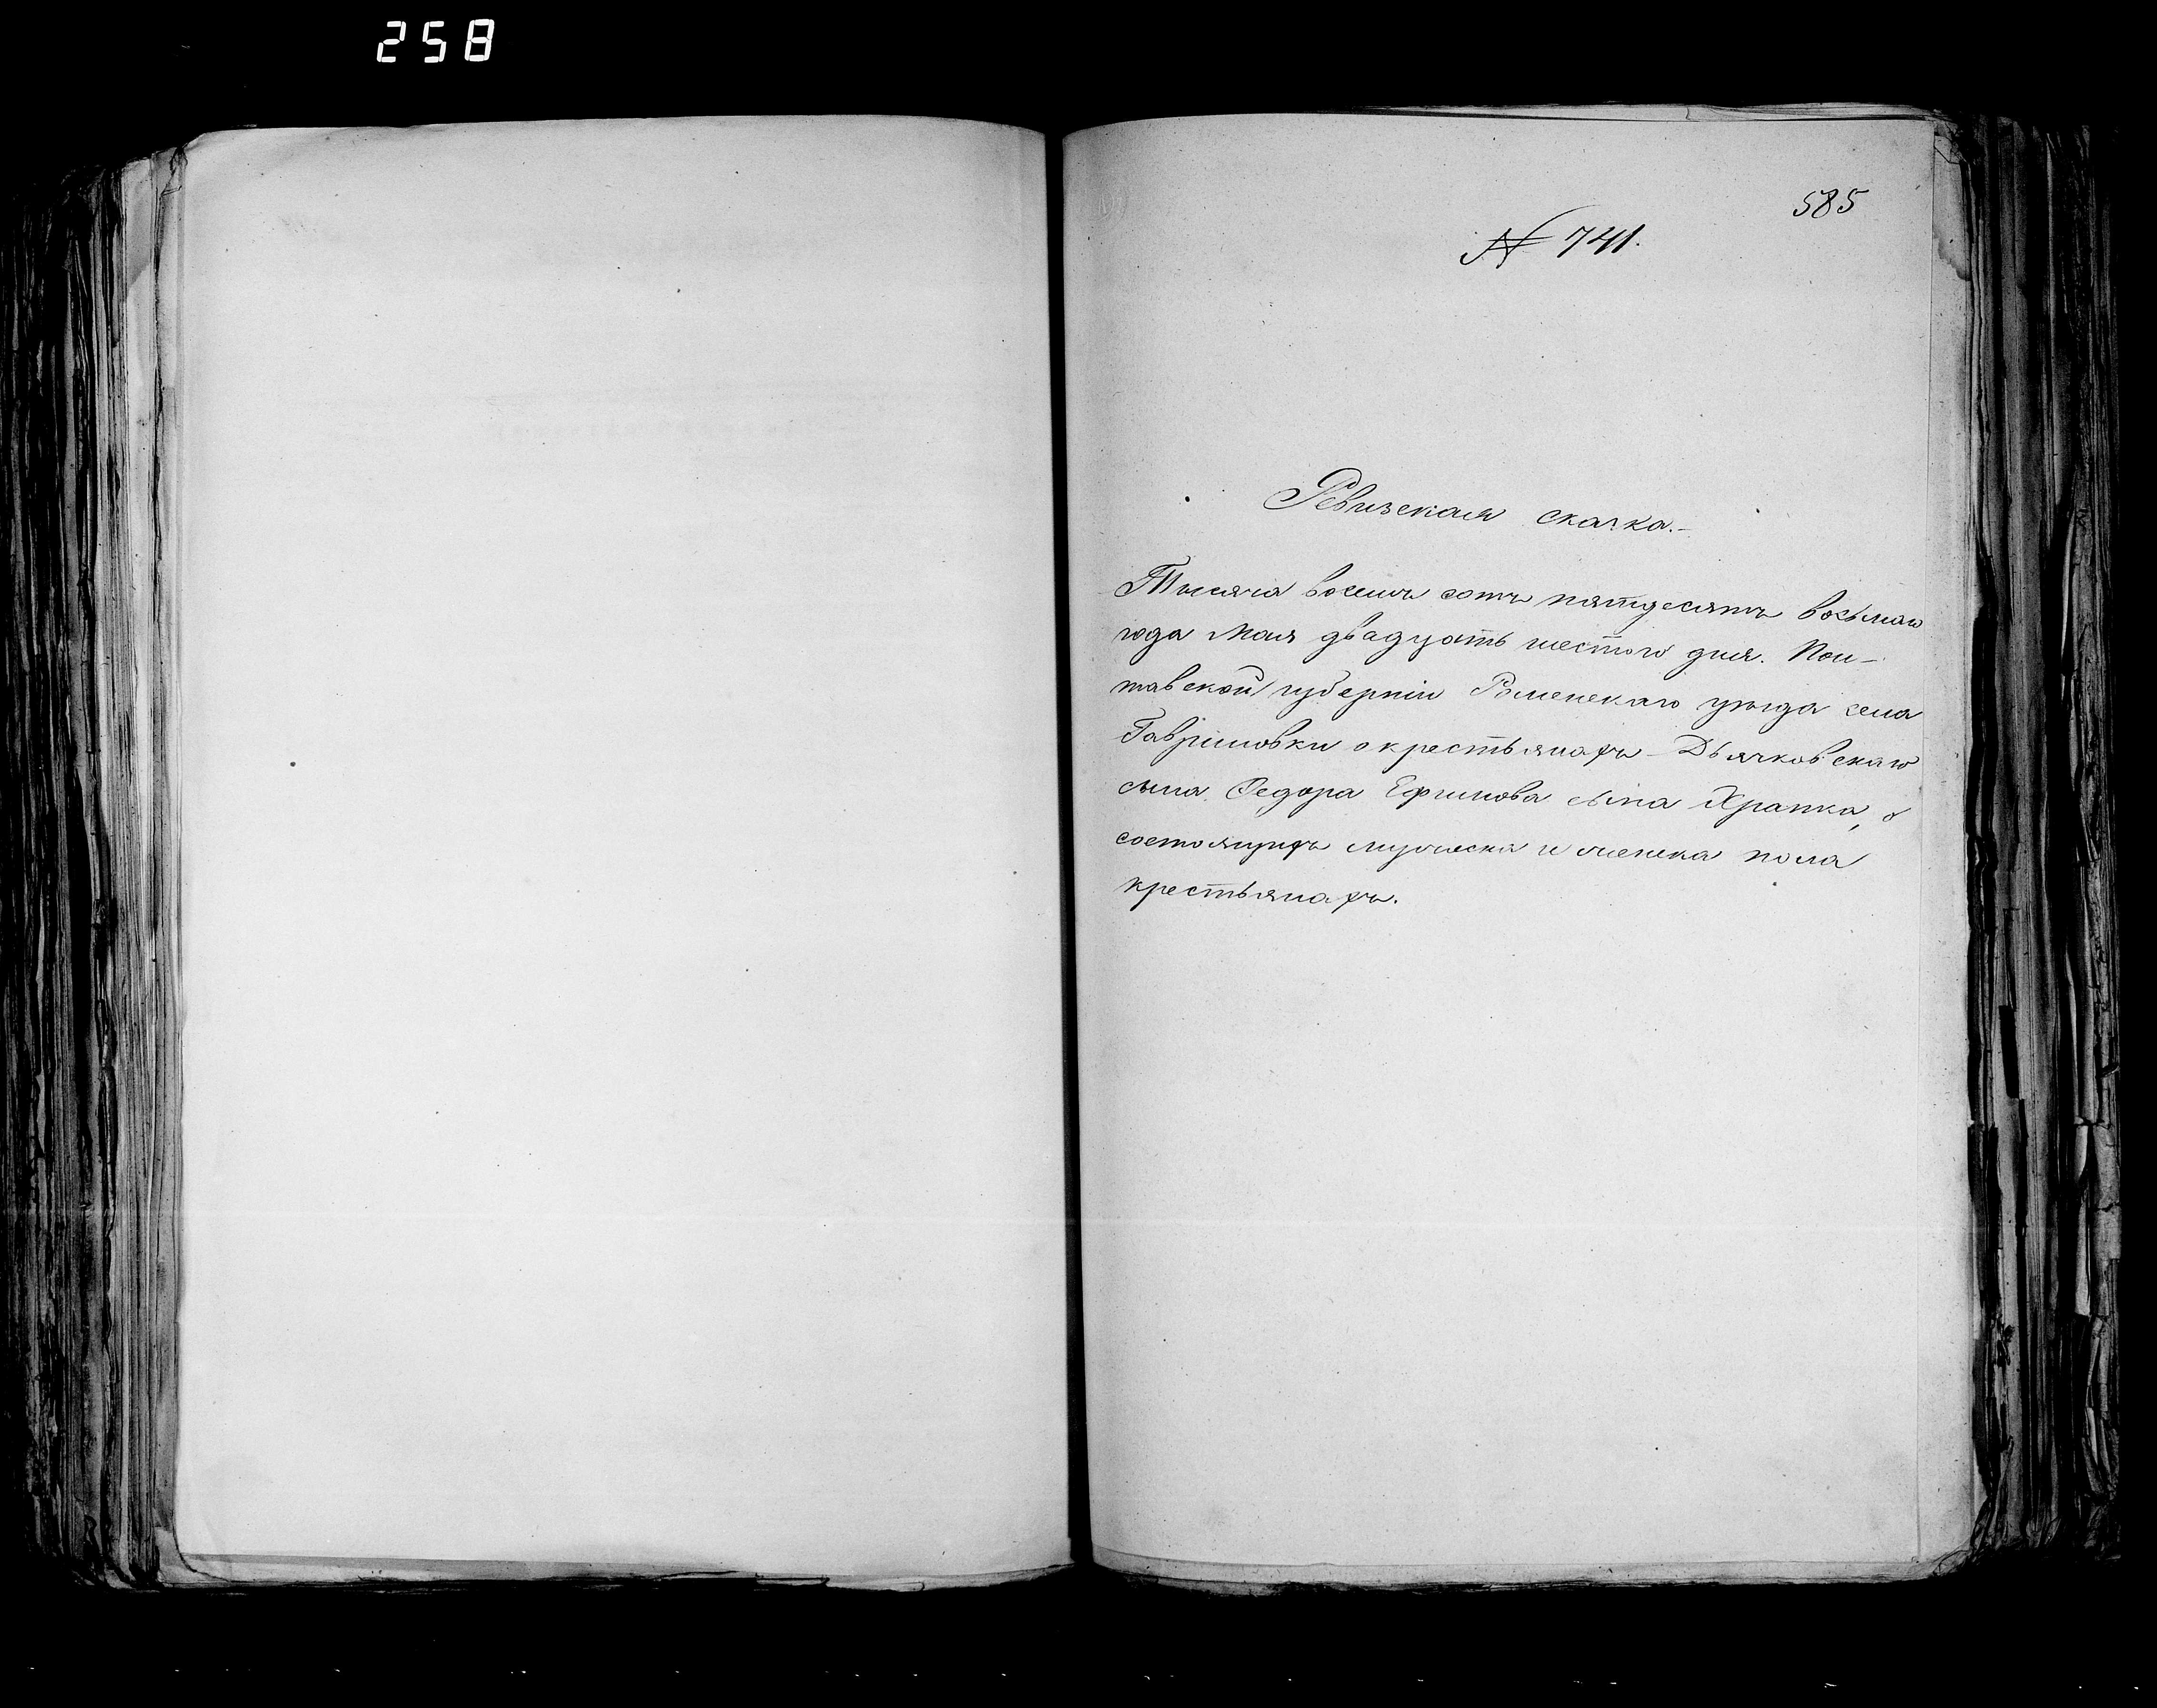 258
585
№ 741.
Ревизская сказка.-
Тысяча восемь сотъ пятдесятъ восьмаго
года Мая двадцать шестого дня. Пол-
тавской губерніи Роменскаго уѣзда села
Гавриловки о крестьянахъ - Дьячковскаго
сына Федора Ефимова сына Храпка, о
состоящихъ мужеска и женска пола
крестьянахъ.